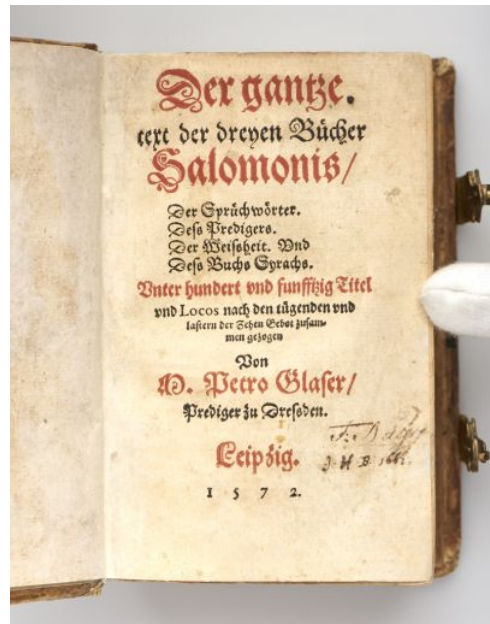 Der gantze.
text der dreyen Bücher
Salomonis/
Der Sprüchwörter.
Deß Predigers.
Der Weißheit. Vnd
Deß Buchs Syrachs.
Vnter hundert vnd funfftzig Titel
vnd Locos nach den tügenden vnd
lastern der Zehen Gebot zusam-
men gezogen
Von
M. Petro Glaser/
Prediger zu Dreßden.
Leipzig.
J H B 166
1 5 7 2.